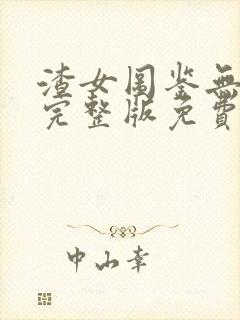 渣女图鉴無
完整版免費
中山幸